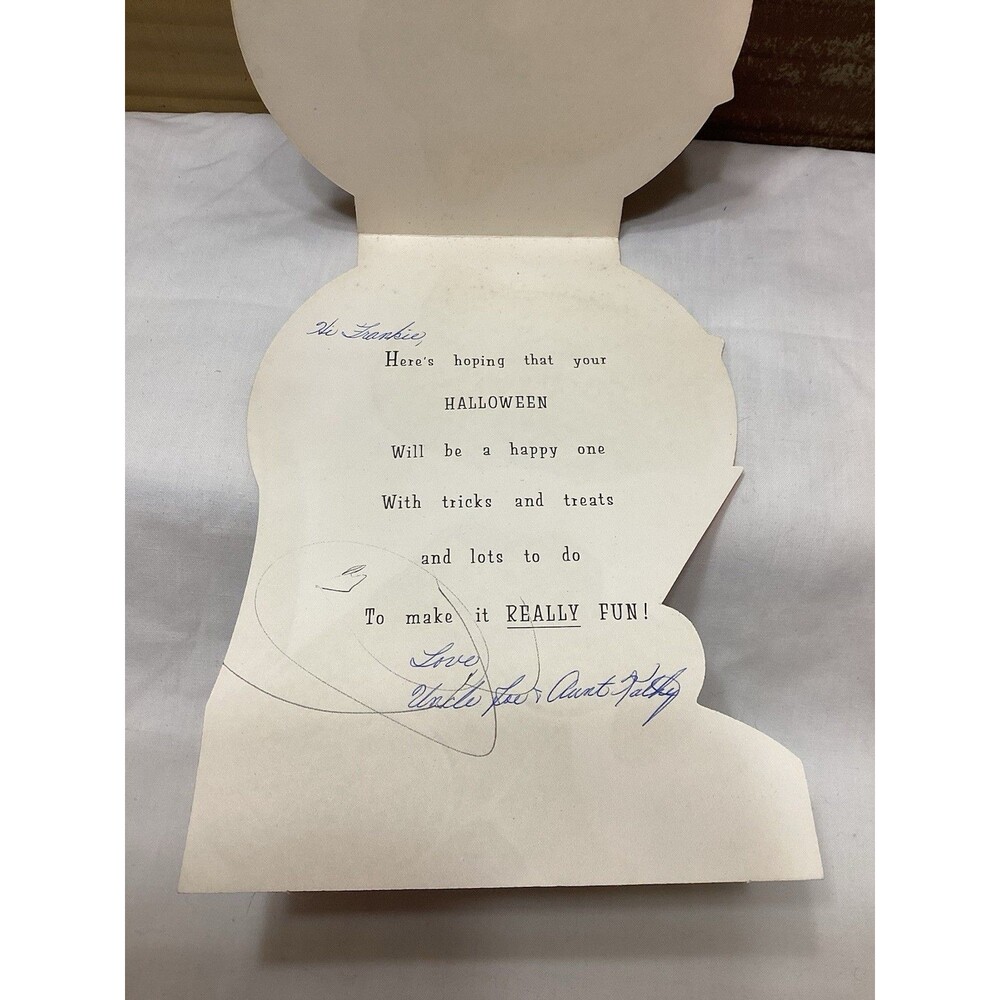 Hi Frankie,
Here's hoping that your
HALLOWEEN
Will be a happy one
With tricks and treats
and lots to do
To make it REALLY FUN!
Love,
Uncle Joe & Aunt Kathy